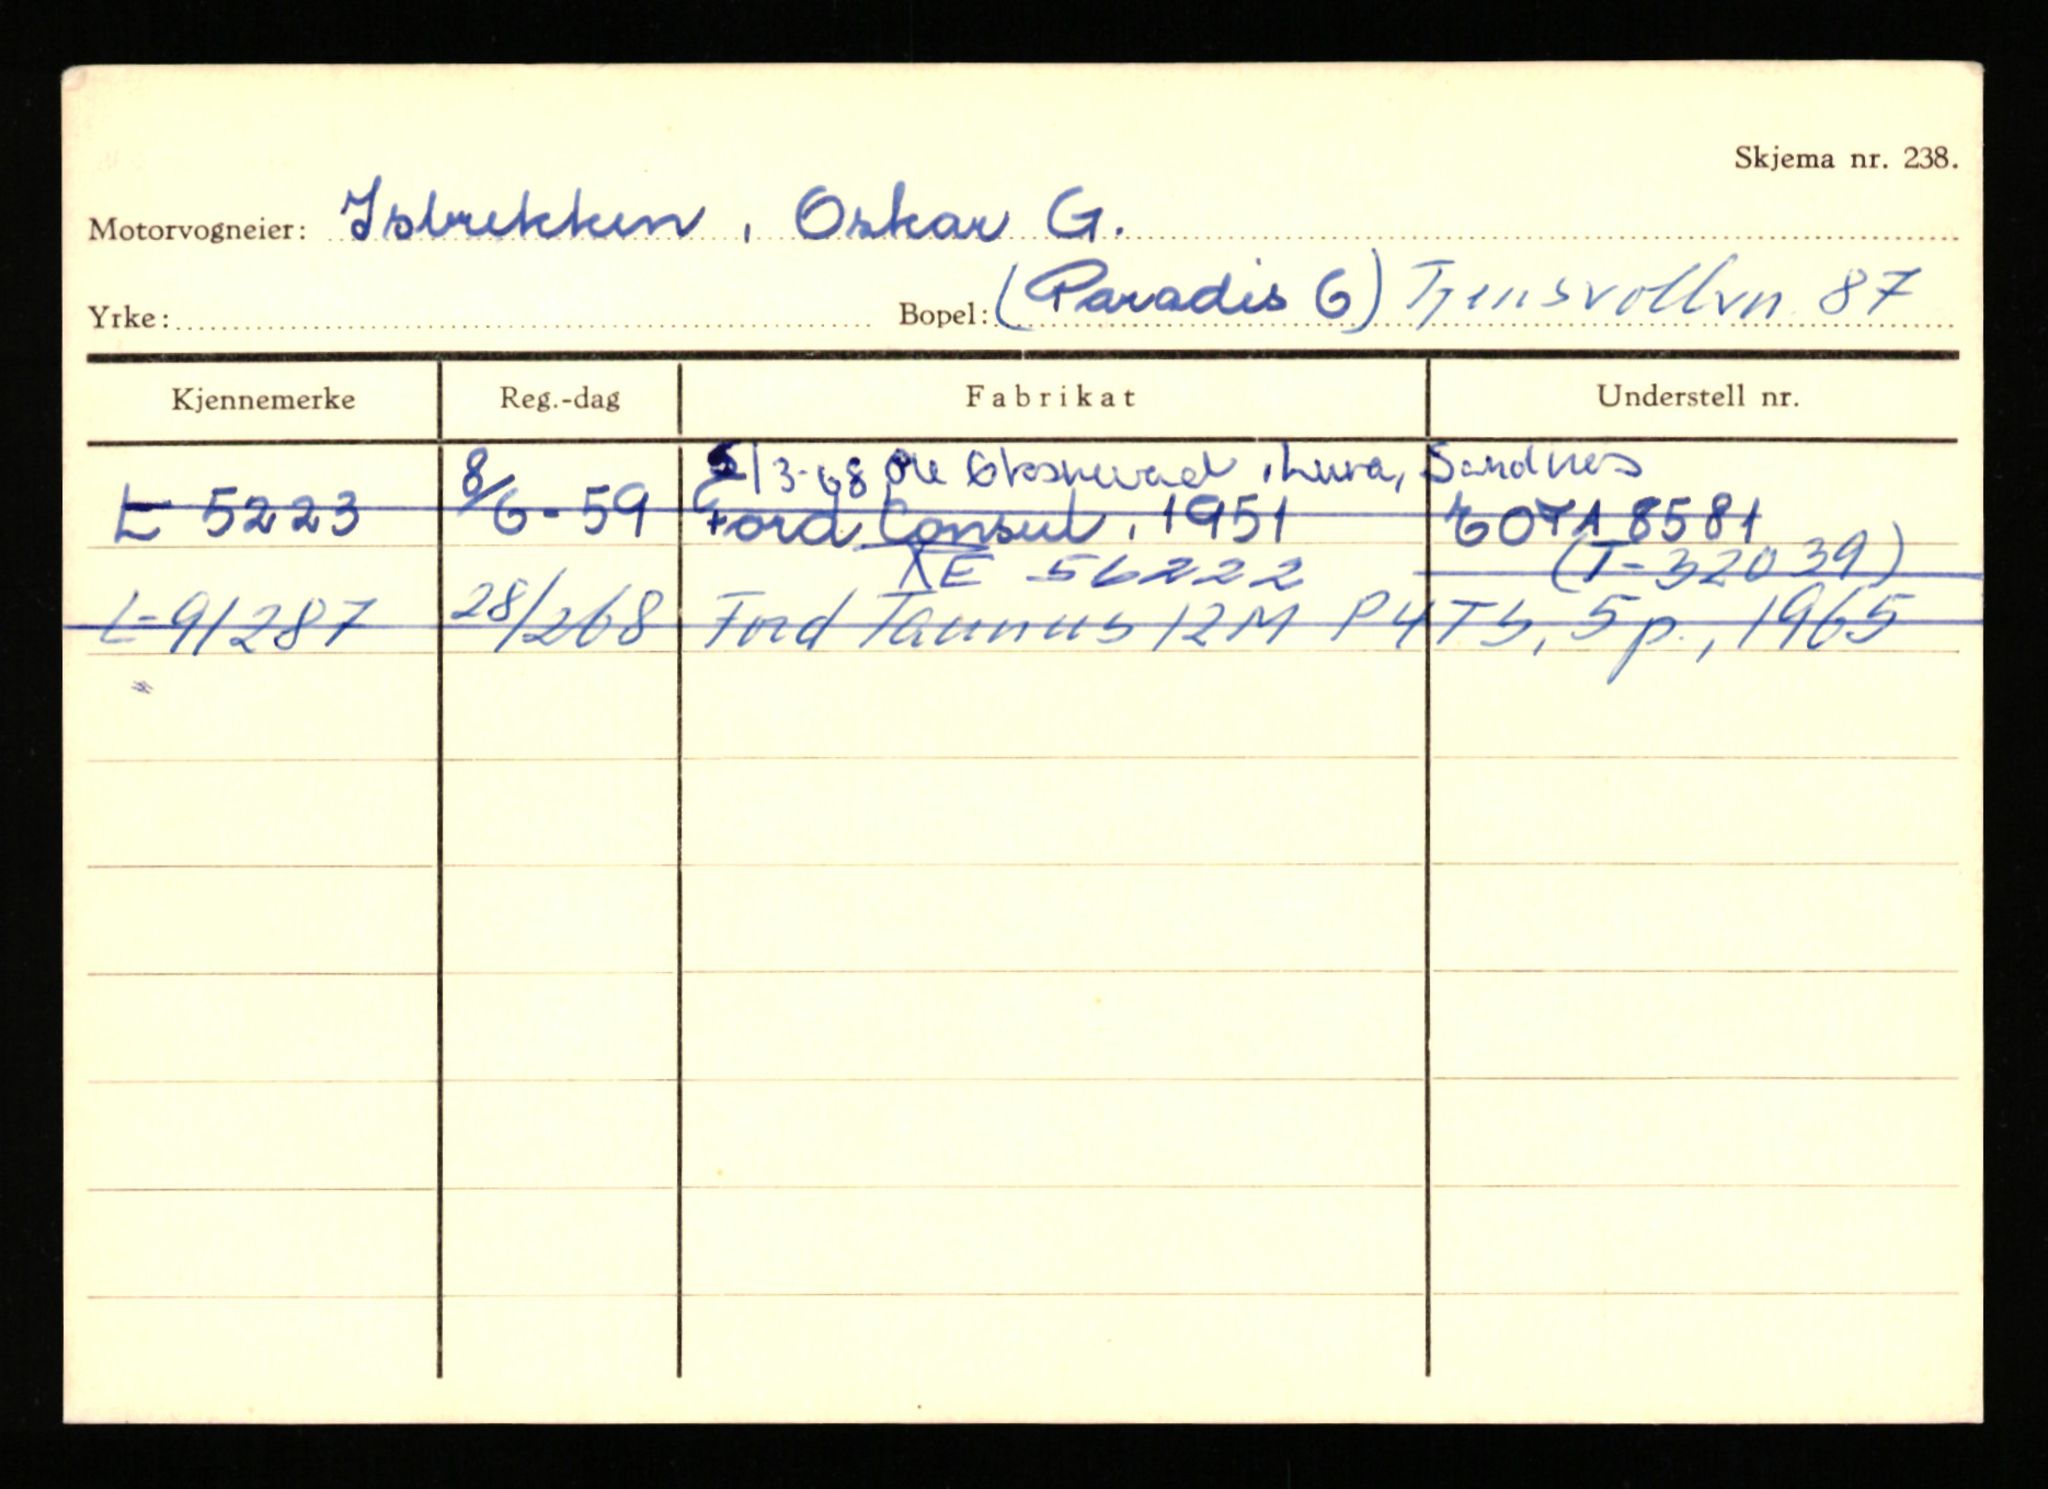 Skjema nr. 238.
Motorvogneier: Isbrekken, Oskar G.
Yrke: Bopel: (Paradis 6) Tjensvollvn 87
Kjennemerke Reg.-dag Fabrikat Understell nr.
5/3-68 Ole , Lura, Sandnes
L 5223 8/6-59 Ford Consul, 1951 EOTA 8581
XE 56222 (T-32039)
L-91287 28/2 68 Ford Taunus 12M P4 TS, 5 p., 1965